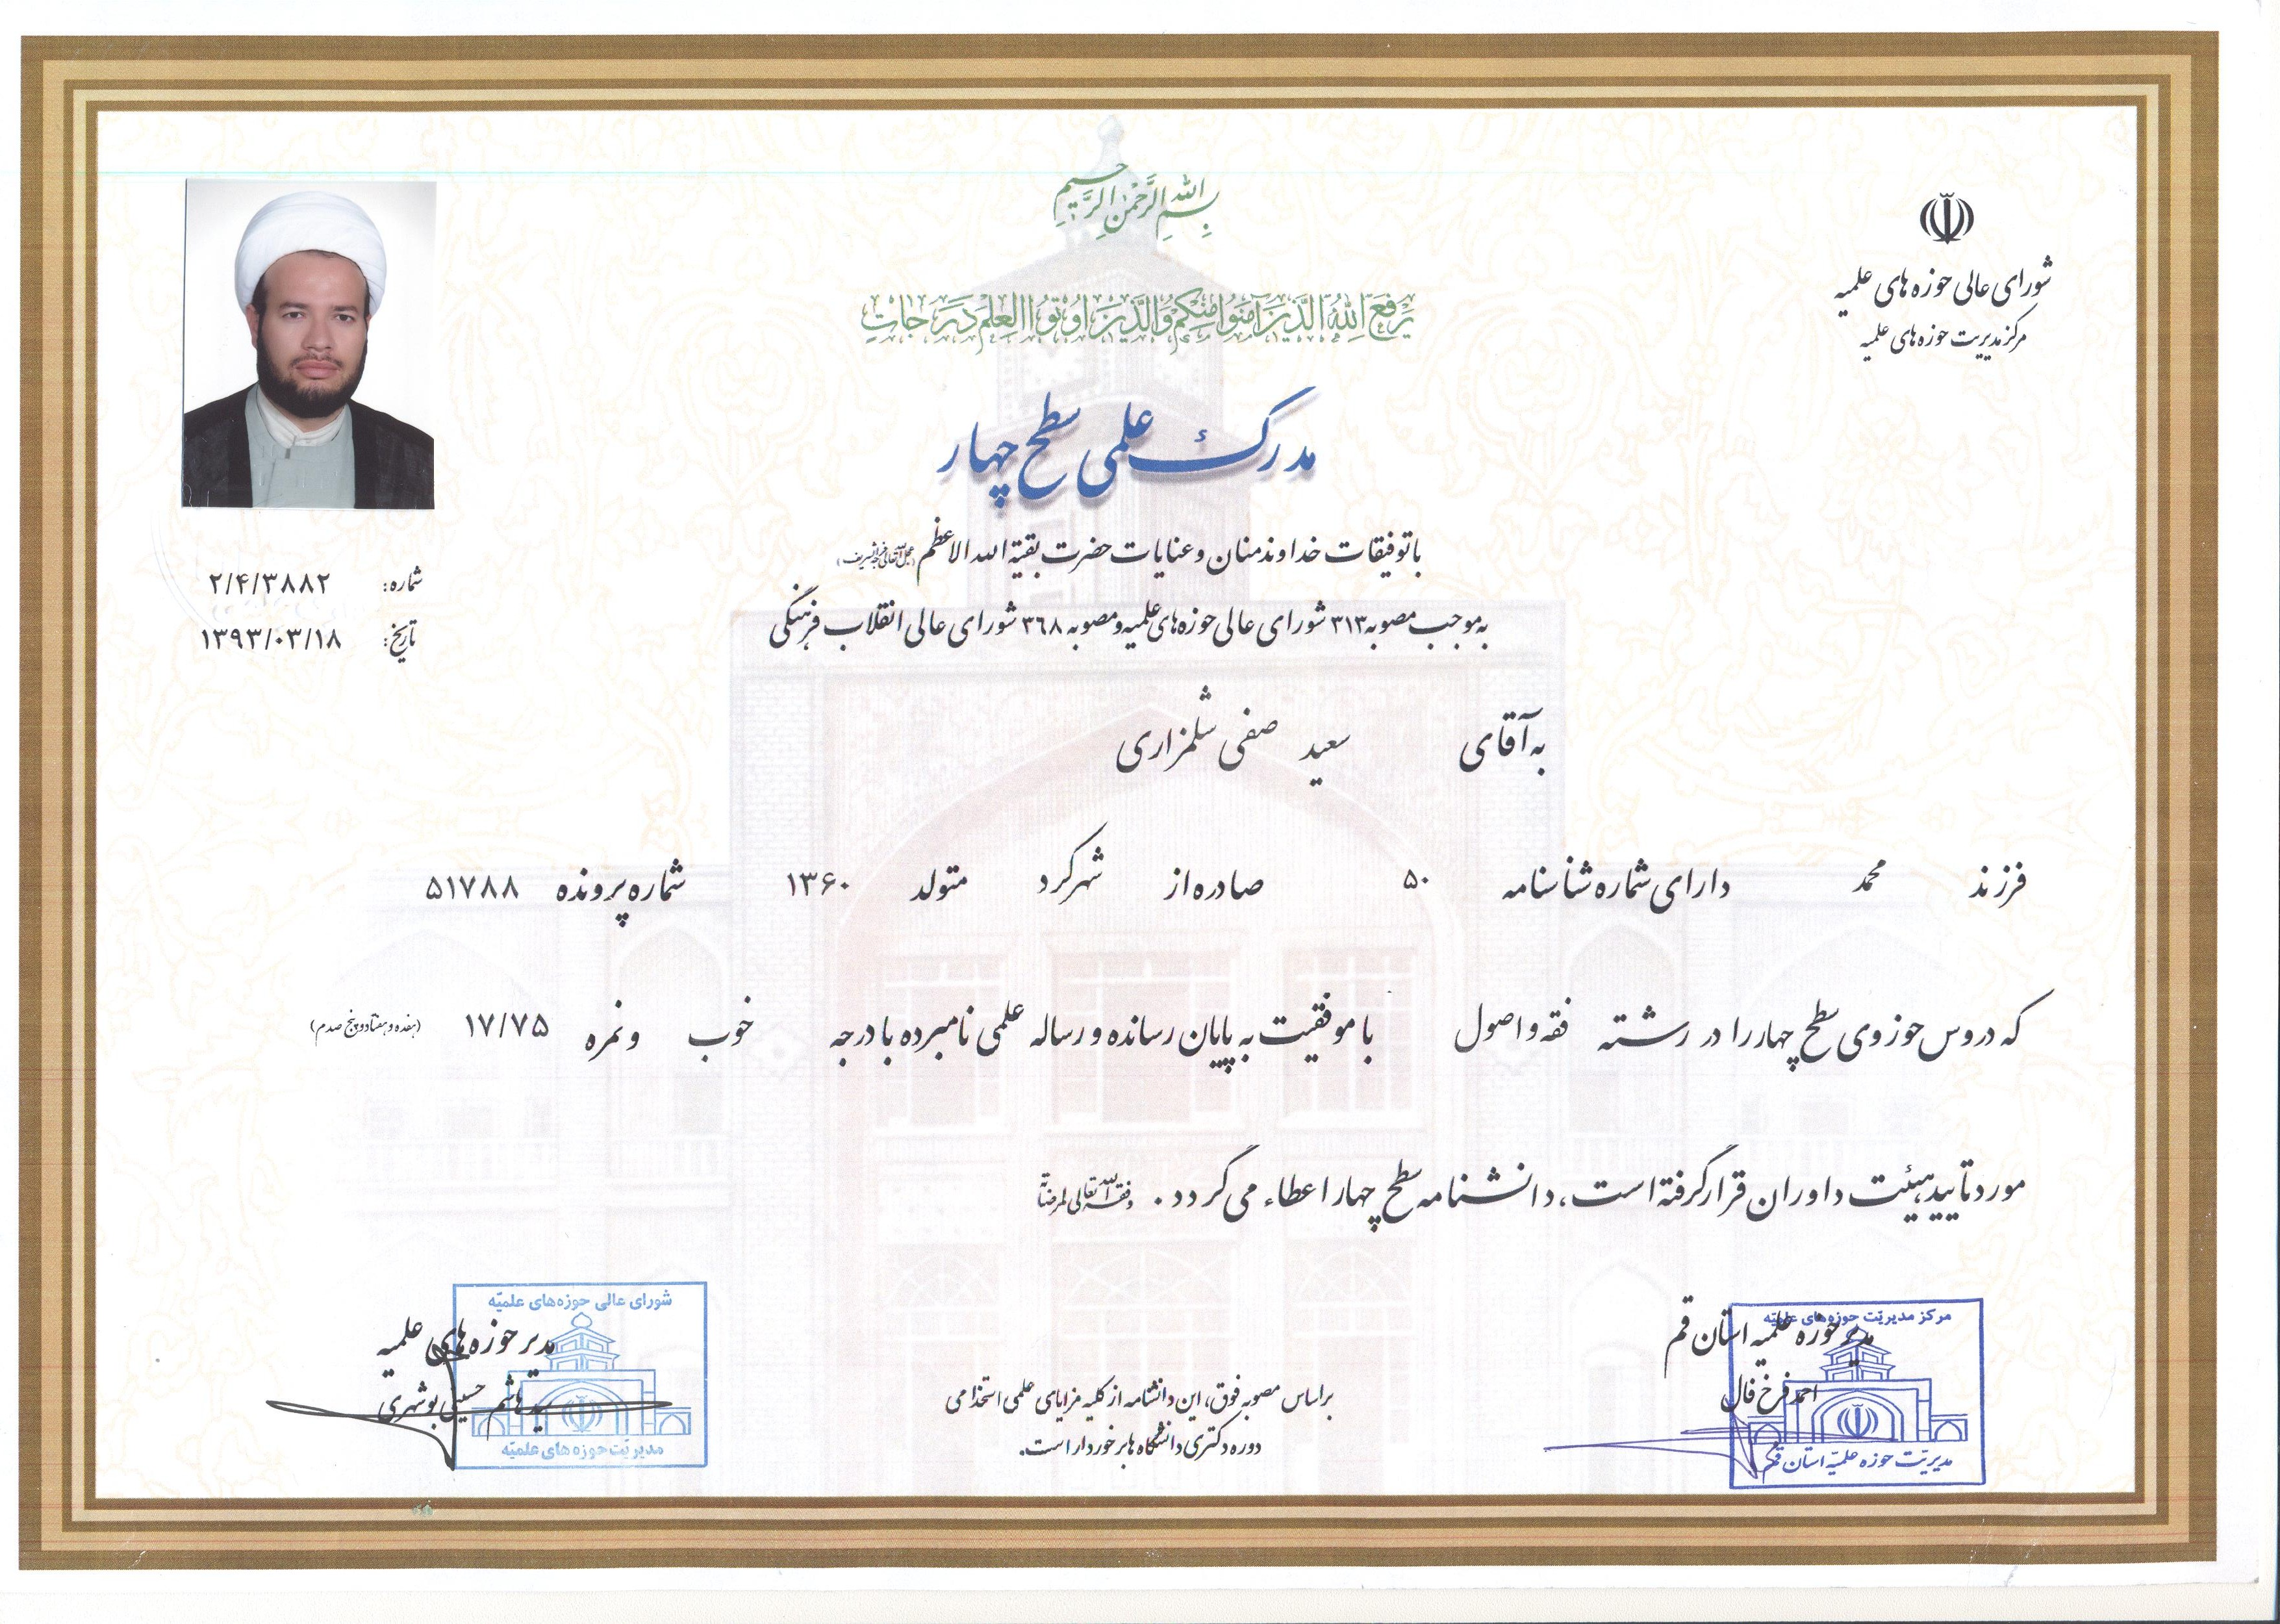 بسم الله الرحمن الرحیم
یرفع الله الذین آمنوا منکم والذین اوتوا العلم درجات
شورای عالی حوزه های علمیه
مرکز مدیریت حوزه های علمیه
مدرک علمی سطح چهار
با توفیقات خداوند منان و عنایات حضرت بقیة الله الاعظم (عجل الله تعالی فرجه الشریف)
به موجب مصوبه ۳۱۳ شورای عالی حوزه های علمیه و مصوبه ۳۶۸ شورای عالی انقلاب فرهنگی
شماره: ۲/۴/۳۸۸۲
تاریخ: ۱۳۹۳/۰۳/۱۸
به آقای سعید صفی شلمزاری
فرزند محمد دارای شماره شناسنامه ۵۰ صادره از شهرکرد متولد ۱۳۶۰ شماره پرونده ۵۱۷۸۸
که دروس حوزوی سطح چهار را در رشته فقه و اصول با موفقیت به پایان رسانده و رساله علمی نامبرده با درجه خوب و نمره ۱۷/۷۵ (هفده و هفتاد و پنج صدم)
مورد تایید هیئت داوران قرار گرفته است، دانشنامه سطح چهار اعطاء می گردد. وفقه الله تعالی لمرضاته
مرکز مدیریّت حوزه‌های علمیّه
مدیر حوزه علمیه استان قم
احمد فرخ فال
مدیریّت حوزه علمیّه استان قم
براساس مصوبه فوق، این دانشنامه از کلیه مزایای علمی استخدامی
دوره دکتری دانشگاه ها برخوردار است.
شورای عالی حوزه‌های علمیّه
مدیر حوزه های علمیه
سید هاشم حسینی بوشهری
مدیریّت حوزه های علمیّه